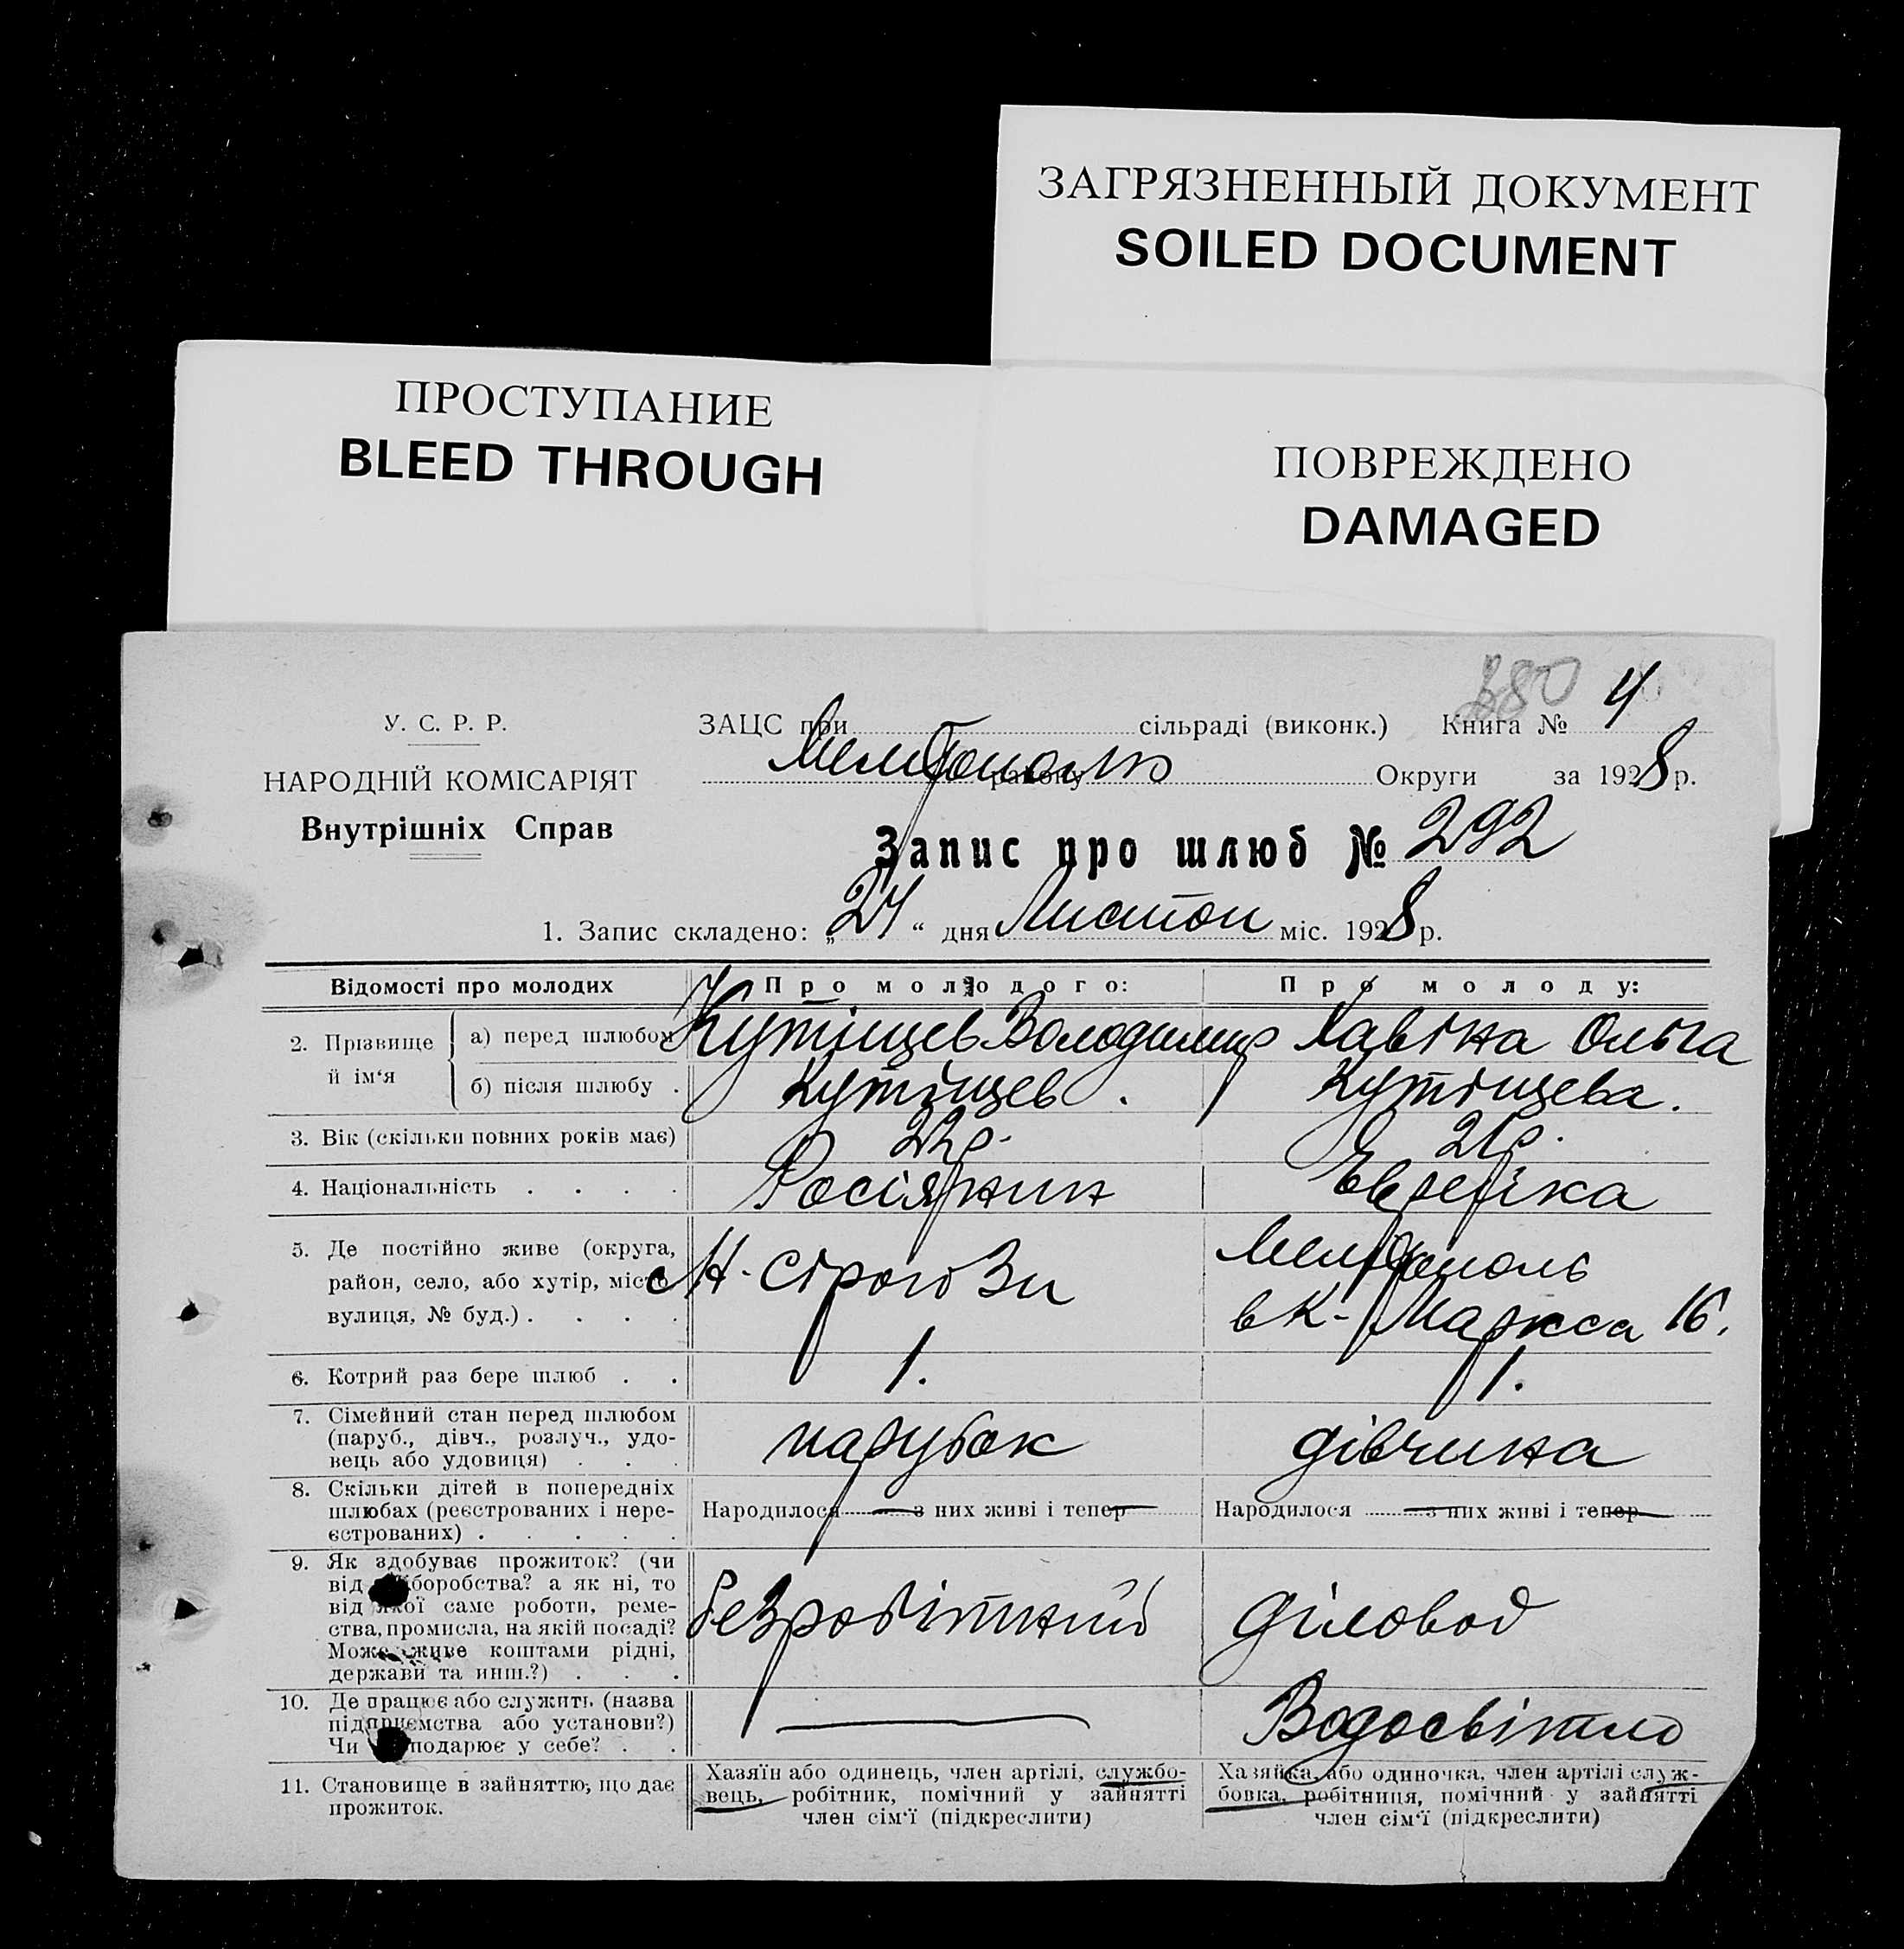 ЗАГРЯЗНЕННЫЙ ДОКУМЕНТ
SOILED DOCUMENT
ПРОСТУПАНИЕ
BLEED THROUGH
ПОВРЕЖДЕНО
DAMAGED
380
У. С. Р. Р.
НАРОДНІЙ КОМІСАРІЯТ
Внутрішніх Справ
ЗАЦС при сільраді (виконк.) Книга № 4
району Округи за 1928 р.
Запис про шлюб № 292
1. Запис складено: „24“ дня Листоп міс. 1928 р.
Відомості про молодих
Про молодого:
Про молоду:
2. Прізвище й ім‘я
а) перед шлюбом
Кутіщев Володимир
Хавіна Ольга
б) після шлюбу .
Кутіщев.
Кутіщева.
3. Вік (скільки повних років має)
22р.
21р.
4. Національність . . . .
Росіянин
Еврейка
5. Де постійно живе (округа,
район, село, або хутір, місто
вулиця, № буд.) . . . .
Мелітополь
в К. Маркса 16.
6. Котрий раз бере шлюб . .
1.
1.
7. Сімейний стан перед шлюбом
(паруб., дівч., розлуч., удо-
вець або удовиця) . . .
парубок
дівчина
8. Скільки дітей в попередніх
шлюбах (реєстрованих і нере-
єстрованих) . . . . .
Народилося — з них живі і тепер —
Народилося — з них живі і тепер —
9. Як здобуває прожиток? (чи
від боробства? а як ні, то
від якої саме роботи, реме-
ства, промисла, на якій посаді?
Може живе коштами рідні,
держави та инш.?) . . .
безробітний
діловод
10. Де працює або служить (назва
підприємства або установи?)
Чи подарює у себе? . .
—
Водосвітло
11. Становище в зайняттю, що дає
прожиток.
Хазяїн або одинець, член артілі, службо-
вець, робітник, помічний у зайнятті
член сім‘ї (підкреслити)
Хазяйка, або одиночка, член артілі служ-
бовка, робітниця, помічний у зайнятті
член сім‘ї (підкреслити)